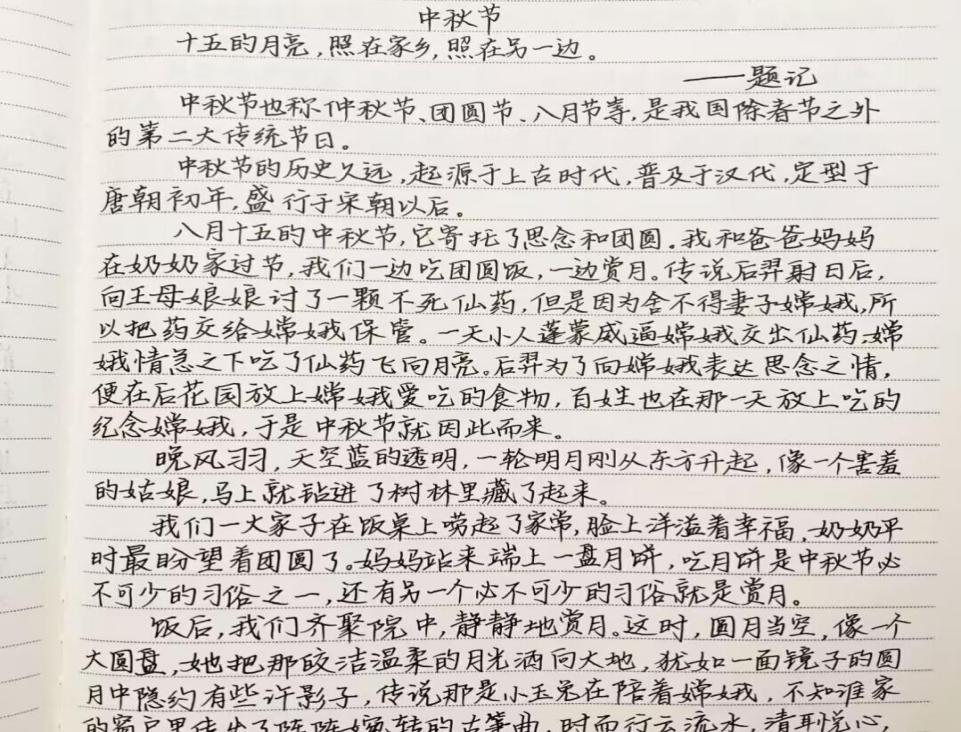 中秋节
十五的月亮,照在家乡,照在另一边。
——题记
中秋节也称仲秋节、团圆节、八月节等,是我国除春节之外
的第二大传统节日。
中秋节的历史久远,起源于上古时代,普及于汉代,定型于
唐朝初年,盛行于宋朝以后。
八月十五的中秋节,它寄托了思念和团圆。我和爸爸妈妈
在奶奶家过节,我们一边吃团圆饭,一边赏月。传说后羿射日后,
向王母娘娘讨了一颗不死仙药,但是因为舍不得妻子嫦娥,所
以把药交给嫦娥保管。一天小人蓬蒙威逼嫦娥交出仙药,嫦
娥情急之下吃了仙药飞向月亮。后羿为了向嫦娥表达思念之情,
便在后花园放上嫦娥爱吃的食物,百姓也在那一天放上吃的
纪念嫦娥,于是中秋节就因此而来。
晚风习习,天空蓝的透明,一轮明月刚从东方升起,像一个害羞
的姑娘,马上就钻进了树林里藏了起来。
我们一大家子在饭桌上唠起了家常,脸上洋溢着幸福,奶奶平
时最盼望着团圆了。妈妈站来端上一盘月饼,吃月饼是中秋节必
不可少的习俗之一,还有另一个必不可少的习俗就是赏月。
饭后,我们齐聚院中,静静地赏月。这时,圆月当空,像一个
大圆盘,她把那皎洁温柔的月光洒向大地,犹如一面镜子的圆
月中隐约有些许影子,传说那是小玉兔在陪着嫦娥,不知谁家
的窗户里传出了阵阵婉转的古筝曲,时而行云流水,清耳悦心,